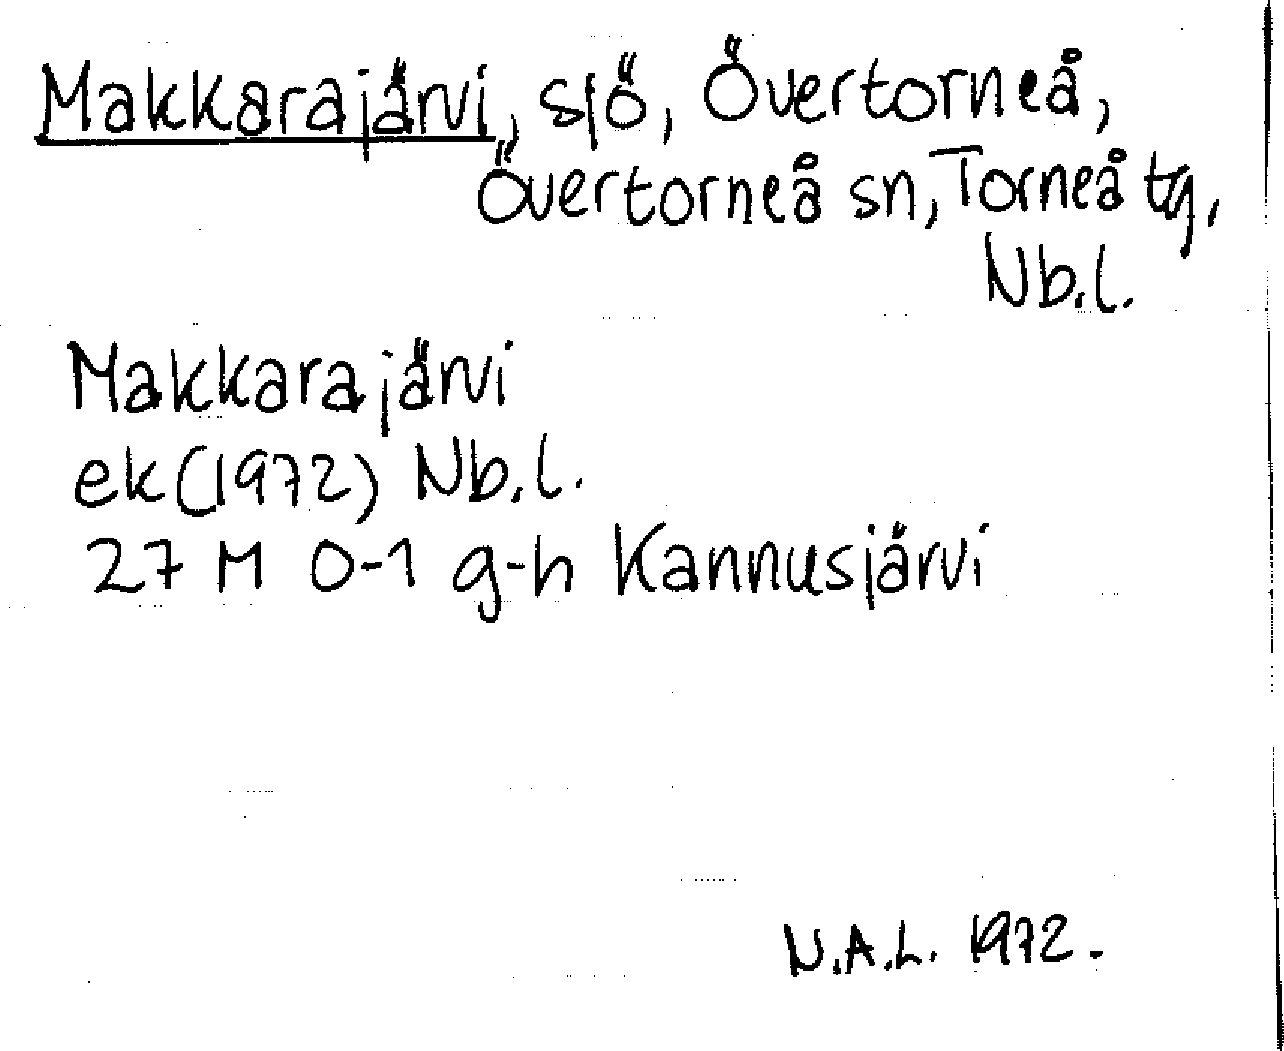 Makkarajärvi, sjö, Övertorneå,
Övertorneå sn, Torneå tg,
Nb.l.
Makkarajärvi
ek (1972) Nb.l.
27 M 0-1 g-h Kannusjärvi
N.A.L. 1972.